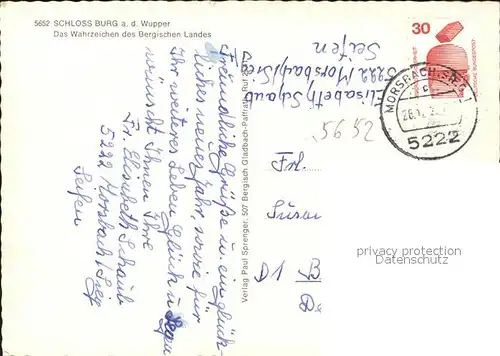 5652 SCHLOSS BURG a. d. Wupper
Das Wahrzeichen des Bergischen Landes
Freundliche Grüße u. ein glück
liches neues Jahr, sowie für
Ihr weiteres Leben Glück u.
wünscht Ihnen Ihre
Fr. Elisabeth Schaub
5222 Morsbach/Sieg
Seifen
Verlag Paul Sprenger, 507 Bergisch Gladbach-Paffrath, Ruf
Elisabeth Schaub
5222 Morsbach/Sieg
Seifen
30
DEUTSCHE BUNDESPOST
MORSBACH, SIEG
5222
5652
Fr.
D1 B
privacy protection
Datenschutz